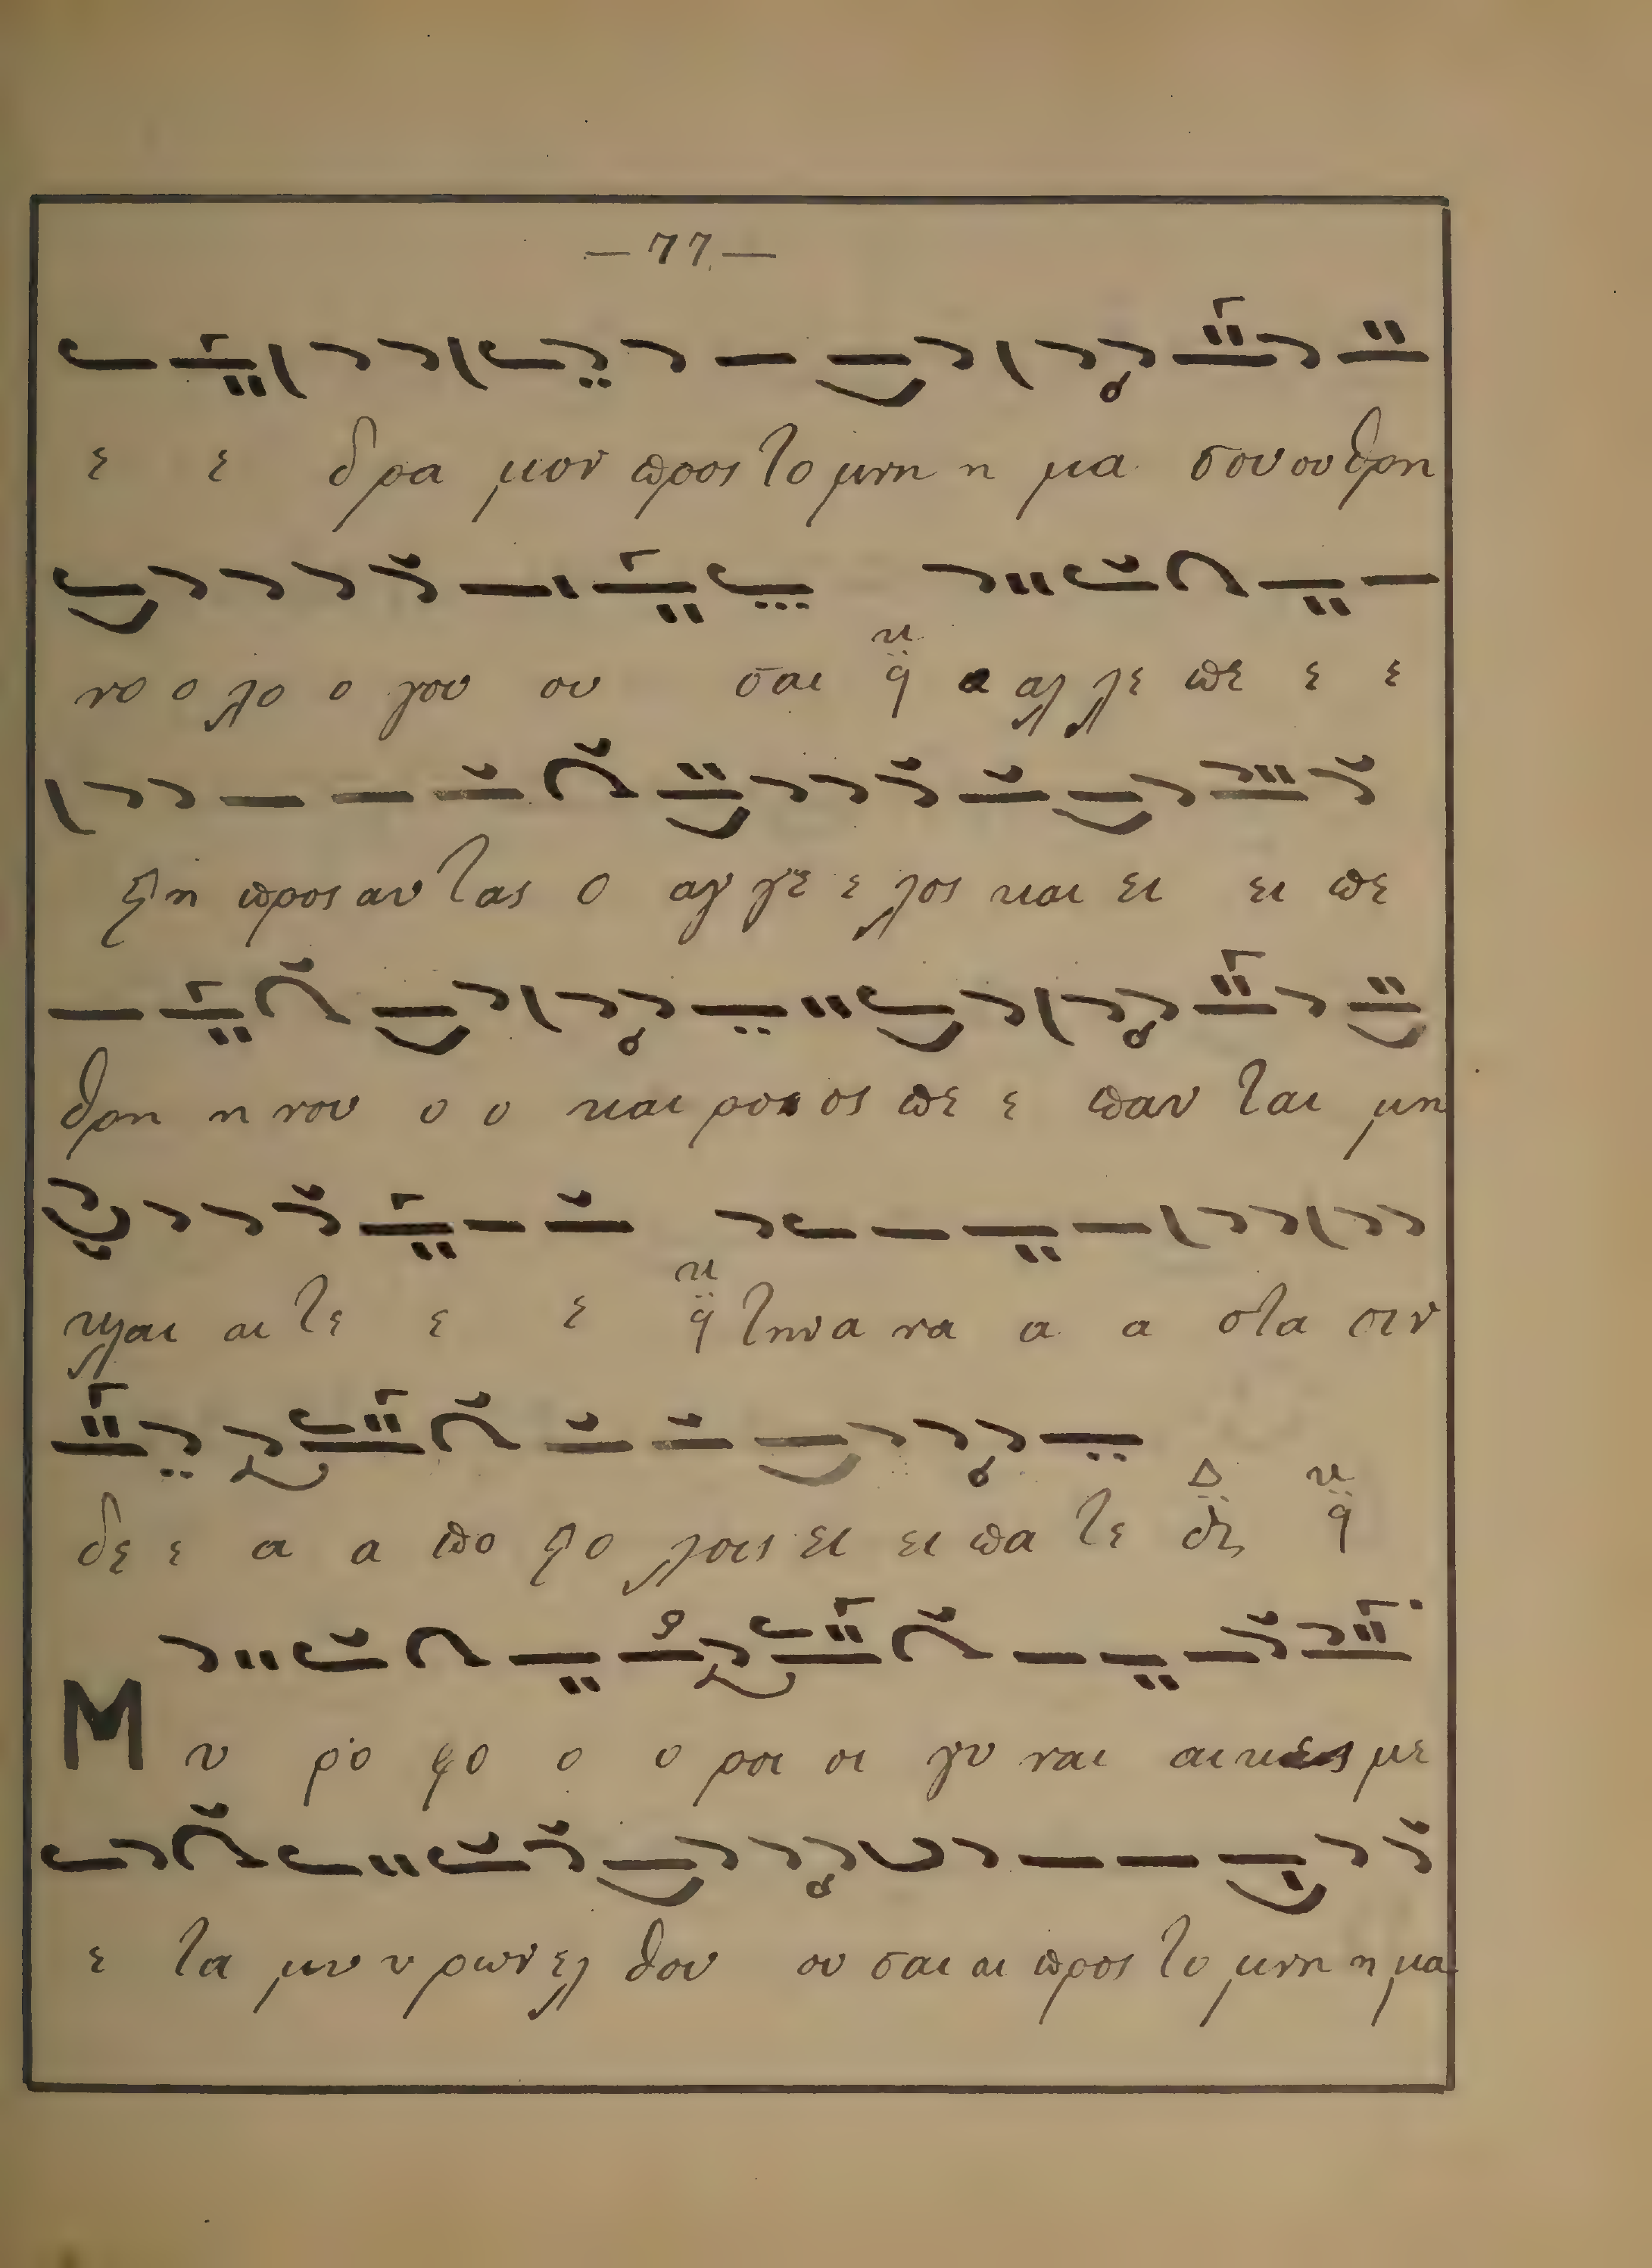 — 77 —
ε ε δρα μον προς το μνη η μα σου ου θρη
νο ο λο ο γου ου σαι α αλ λε πε ε ε
στη προς αυ τας ο αγ γε ε λος και ει ει πε
θρη η νου ο ο και ρο ος πε ε παυ ται μη
κλαι αι τε ε ε την α να α α στα σιν
δε ε α α πο στο λοις ει ει πα τε
Μυ ρο φο ο ο ροι οι γυ ναι αι κες με
ε τα μυ υ ρων ελ θου ου σαι αι προς το μνη η μα